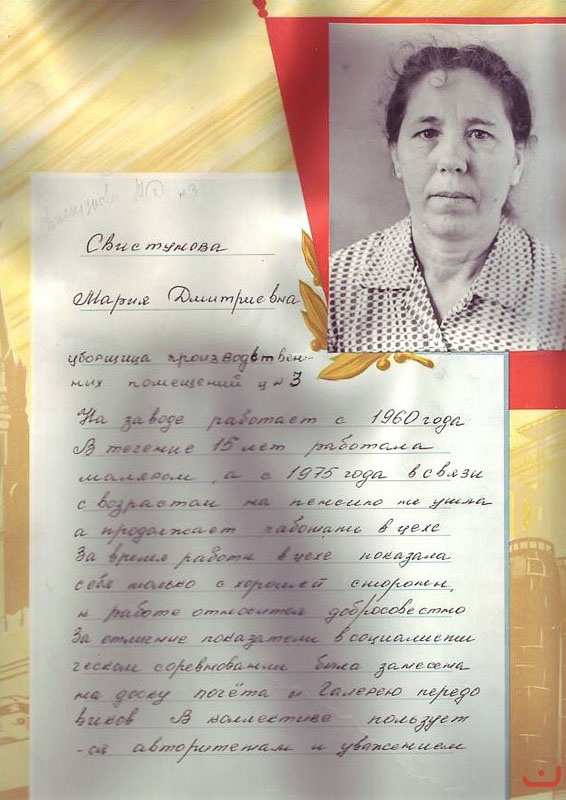 Свистунова МД ц3
Свистунова
Мария Дмитриевна
уборщица производствен-
ных помещений ц№3
На заводе работает с 1960 года
В течение 15 лет работала
маляром, а с 1975 года в связи
с возрастом на пенсию не ушла
а продолжает работать в цехе
За время работы в цехе показала
себя только с хорошей стороны,
к работе относится добросовестно
За отличные показатели в социалисти
ческом соревновании была занесена
на доску почёта и Галерею передо
виков В коллективе пользует
-ся авторитетам и уважением